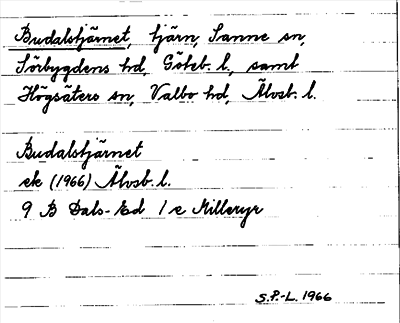 Budalstjärnet, tjärn, Sanne sn,
Sörbygdens hd, Göteb. l., samt
Högsäters sn, Valbo hd, Älvsb. l.
Budalstjärnet
ek (1966) Älvsb. l.
9 B Dals-Ed 1 e Killeryr
S.P.-L. 1966